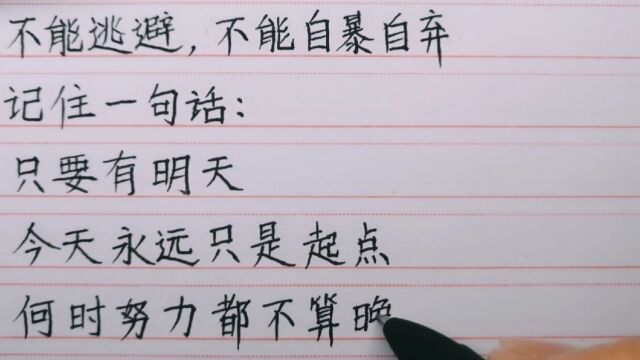 不能逃避,不能自暴自弃
记住一句话:
只要有明天
今天永远只是起点
何时努力都不算晚